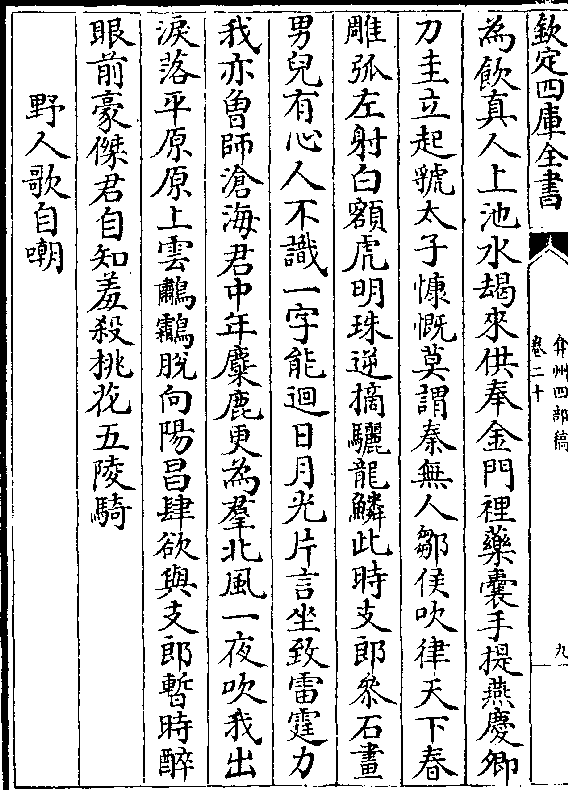 欽定四庫全書
弇州四部稿
卷二十
九
為飲真人上池水朅來供奉金門裡藥囊手提燕慶卿
刀圭立起虢太子慷慨莫謂秦無人鄒侯吹律天下春
雕弧左射白額虎明珠逆摘驪龍鱗此時支郎參石畫
男兒有心人不識一字能迴日月光片言坐致雷霆力
我亦魯師滄海君中年麋鹿更為羣北風一夜吹我出
淚落平原原上雲鸘鷫脫向陽昌肆欲與支郎暫時醉
眼前豪傑君自知羞殺挑花五陵騎
野人歌自嘲